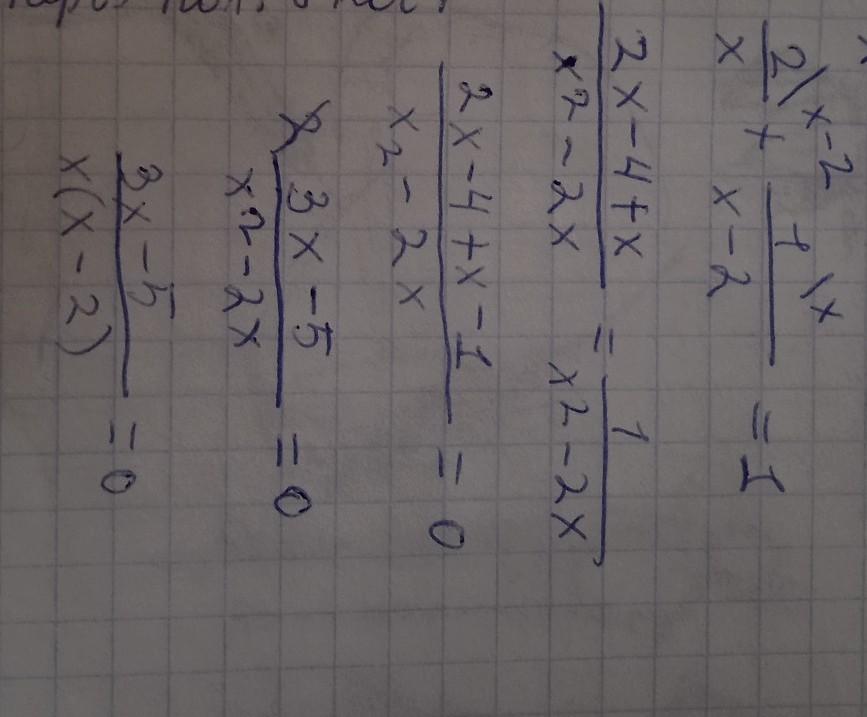 2/x \x-2 + 1/(x-2) \x = 1
(2x-4+x)/(x²-2x) = 1/(x²-2x)
(2x-4+x-1)/(x2-2x) = 0
(3x-5)/(x²-2x) = 0
(3x-5)/(x(x-2)) = 0